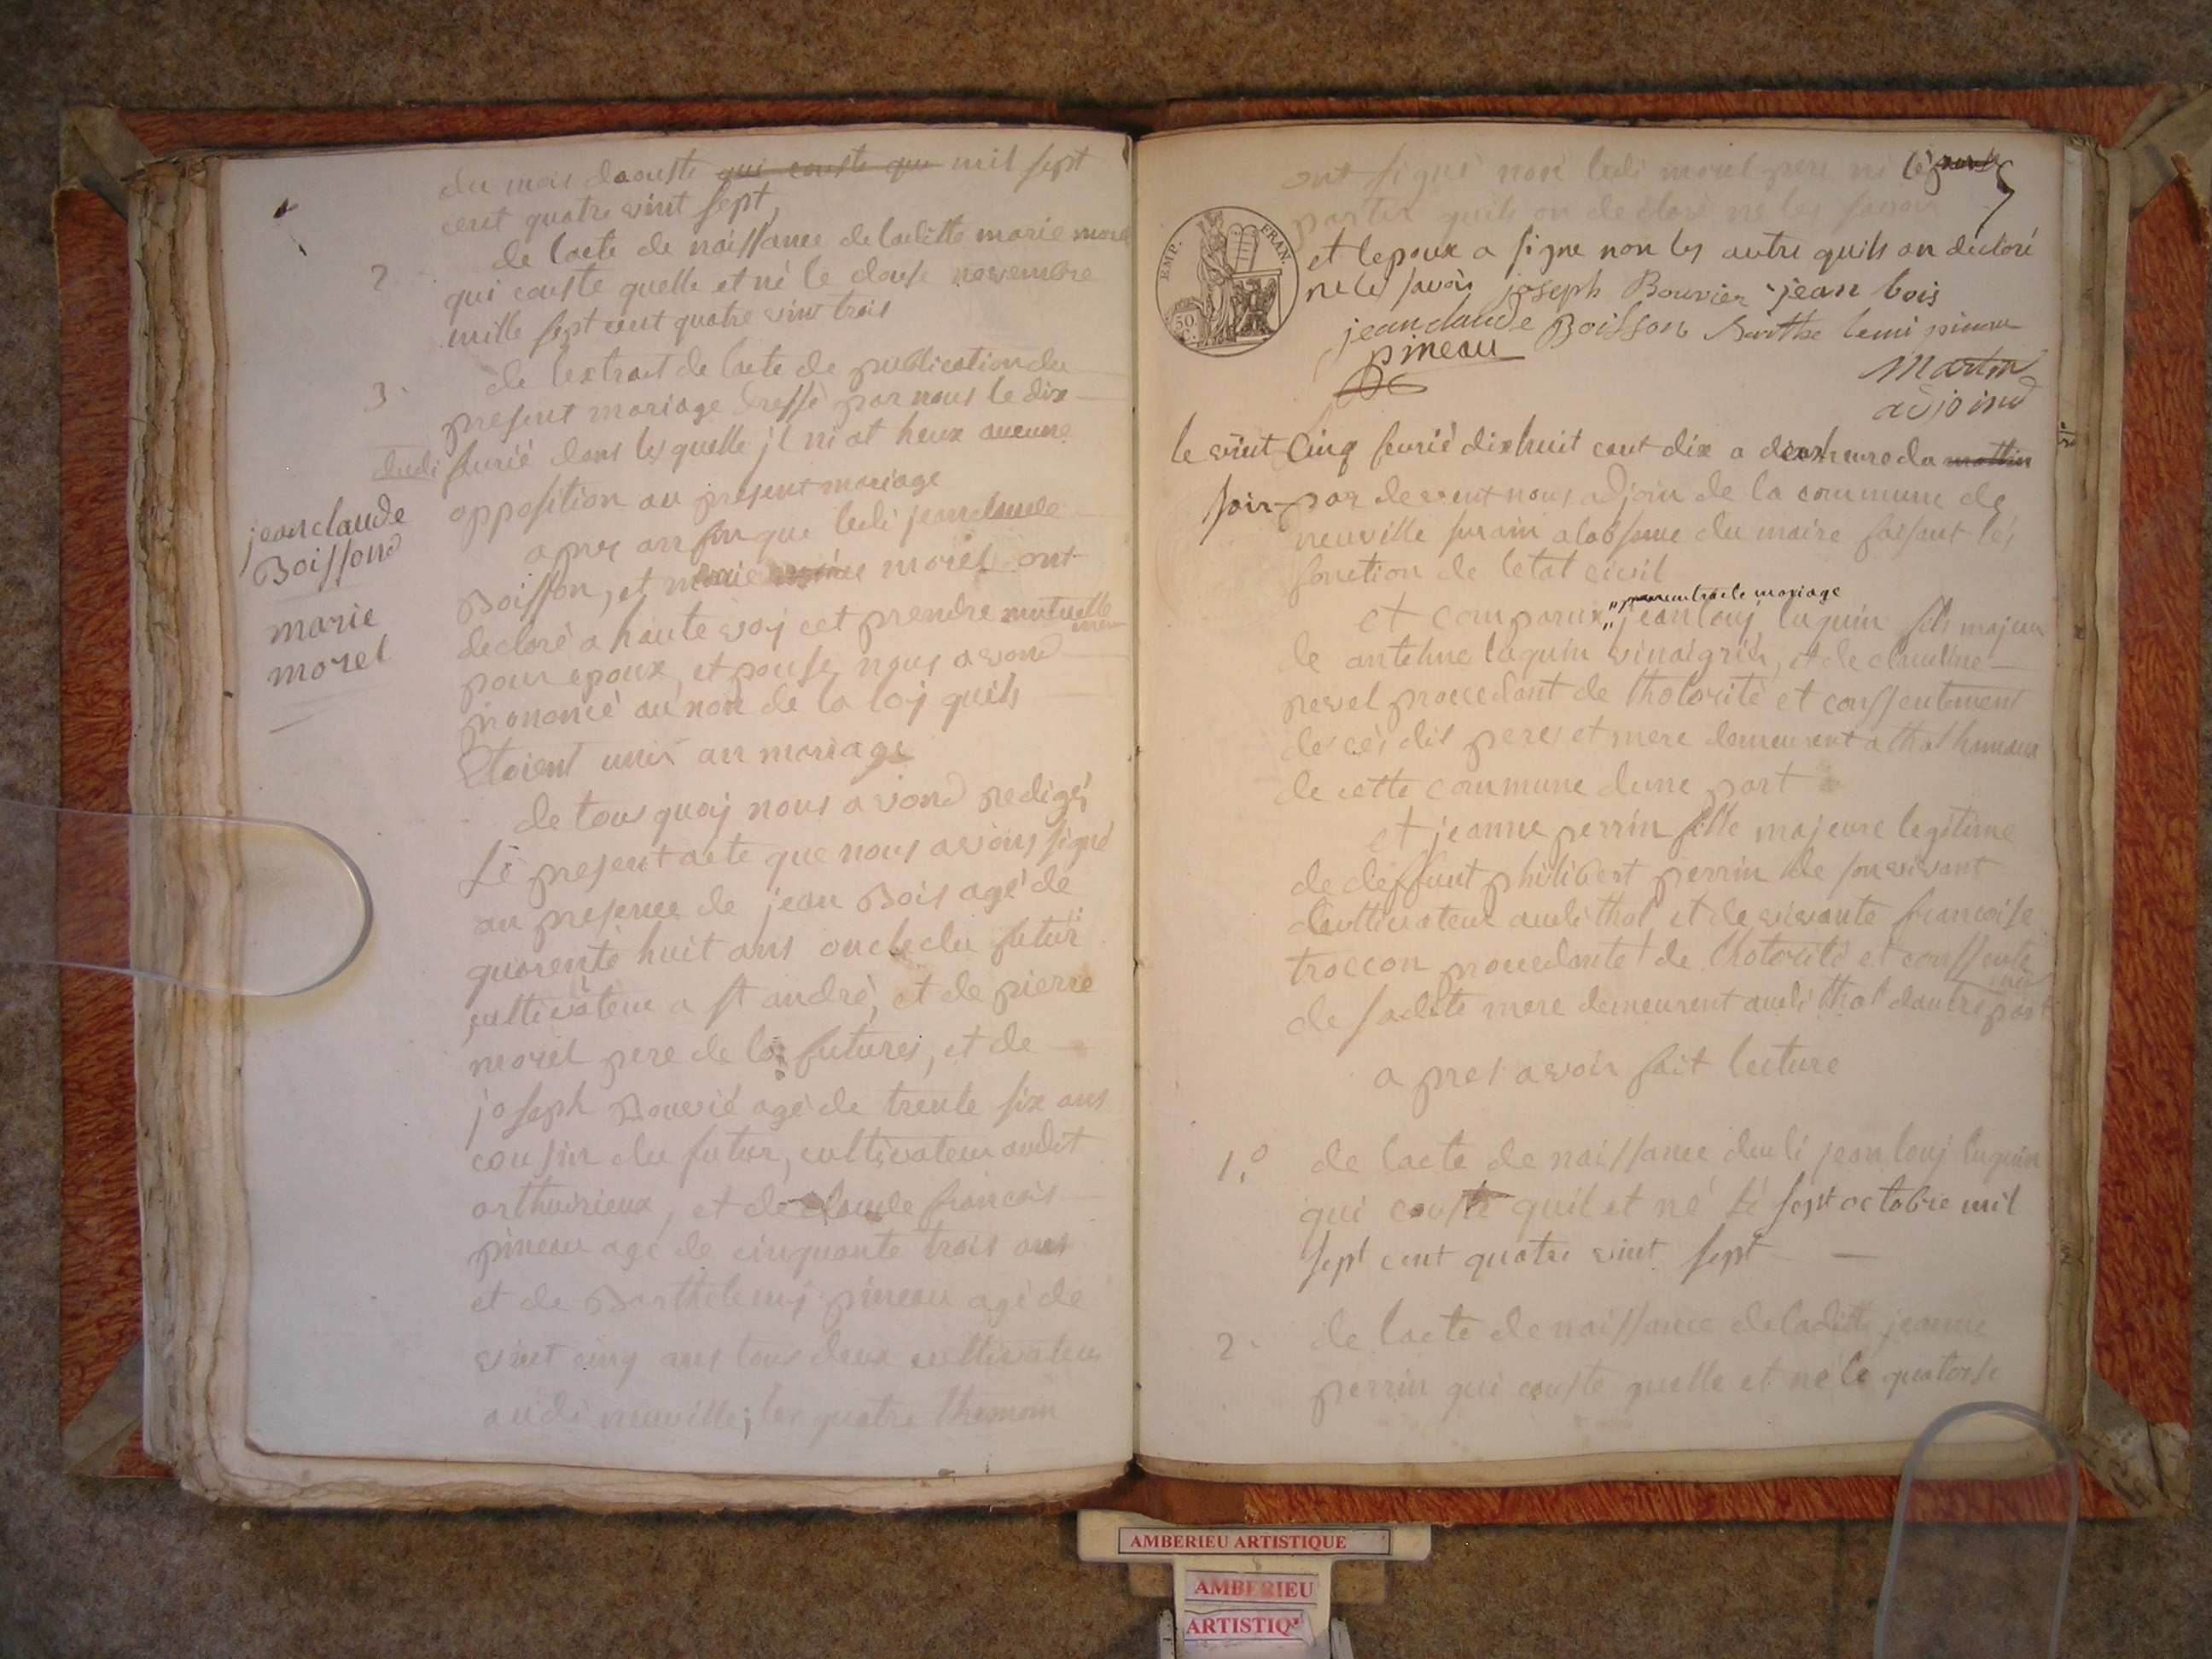 du mois daouste qui conste que mil sept
cent quatre vint sept,
2 de lacte de naissance deladitte marie morel
qui conste quelle et né le douse novembre
mille sept cent quatre vint trois
3 de lextrait de lacte de publication du
present mariage dressé par nous le dix
dudi fevrié dans lesquelle jl ni at heux aucune
opposition au present mariage
jean claude
Boisson
marie
morel
apres anfin que ledi jean claude
Boisson, et marie morel ont
declaré a haute voij cet prendre mutuelle
ment
pour epoux, et pouse, nous avond
prononcé au non de la loij quils
Etoient unis an mariage
de tous quoij nous avond redigés
Le present acte que nous avons signé
an presence de jean Bois agé de
quarente huit ans oncle du futur
cultivateur a st andré, et de pierre
morel pere de la futures, et de
joseph Bouvié agé de trente six ans
cousin du futur, cultivateur audit
arthurieux, et de claude francois
pineau agé de cinquante trois ans
et de Barthelemij pineau agé de
vint cinq ans tous deux cultivateur
audi neuville; les quatre themoin
ont signé non ledi morel pere ni les
parties quils on declaré ne les savoir
EMP. FRAN.
50 C.
et lepoux a signe non les autre quils on declaré
ne les savoir joseph Bouvier jean bois
jean claude Boisson Barthelemi pineau
pineau
Martin
adjoind
le vint Cinq fevrié dixhuit cent dix a deux heure du mattin
soir par devent nous adjoin de la commune de
neuville surain alabsence du maire faisant les
fonction de letat civil
pour contracte mariage
et comparux " jean louij luguin fils majeur
de antehne luguin vinaigrié, et de claudine
revel procedant de lhotorité et conssentement
de cés dis peres et mere demeurent a thol hameaux
de cette commune dune part
et jeanne perrin fille majeure legitime
de deffunt philibert perrin de son vivant
Cultivateur audi thol et de vivante francoise
troccon procedante de lhotorité et conssente
ment
de sadite mere demeurent audi thol dautre part
apres avoir fait lecture
1.° de lacte de naissance dudi jean louij luguin
qui conste quil et né le sept octobre mil
sept cent quatre vint sept
2 de lacte de naissance deladitte jeanne
perrin qui conste quelle et né le quatorse
AMBERIEU ARTISTIQUE
AMBERIEU
ARTISTIQ